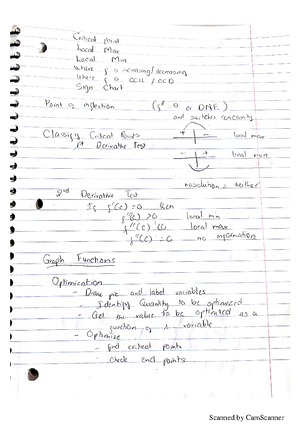 Critical point
Local Max
Local Min
Where f is increasing/decreasing
Where f is CCU / CCD
Sign Chart
Point of inflection (f" = 0 or DNE)
and switches concavity
Classify Critical Points + - local max
1st Derivative Test
- + local min
no solution = neither
2nd Derivative Test
If f'(c) = 0 then
f"(c) > 0 local min
f"(c) < 0 local max
f"(c) = 0 no information
Graph Functions
Optimization
- Draw pic and label variables
Identify Quantity to be optimized
- Get the value to be optimized as a
function of 1 variable
- Optimize
- find critical points
- check end points
Scanned by CamScanner